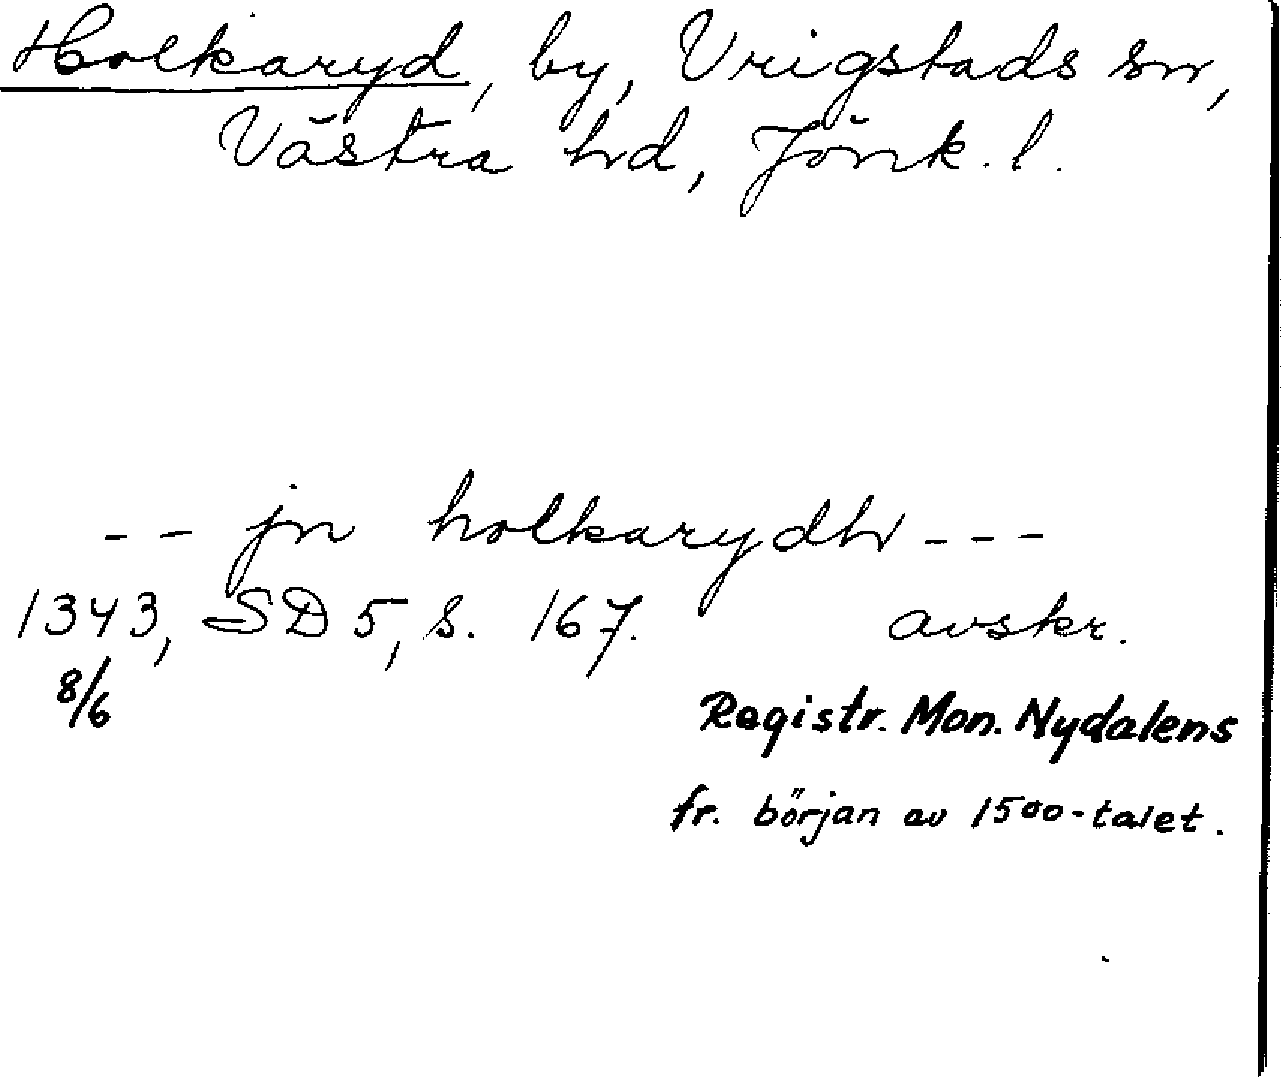 Holkaryd, by, Vrigstads sn,
Västra hd, Jönk. l.
-- jn holkarydh ---
1343, SD 5, s. 167. avskr.
8/6 Registr. Mon. Nydalens
fr. början av 1500-talet.